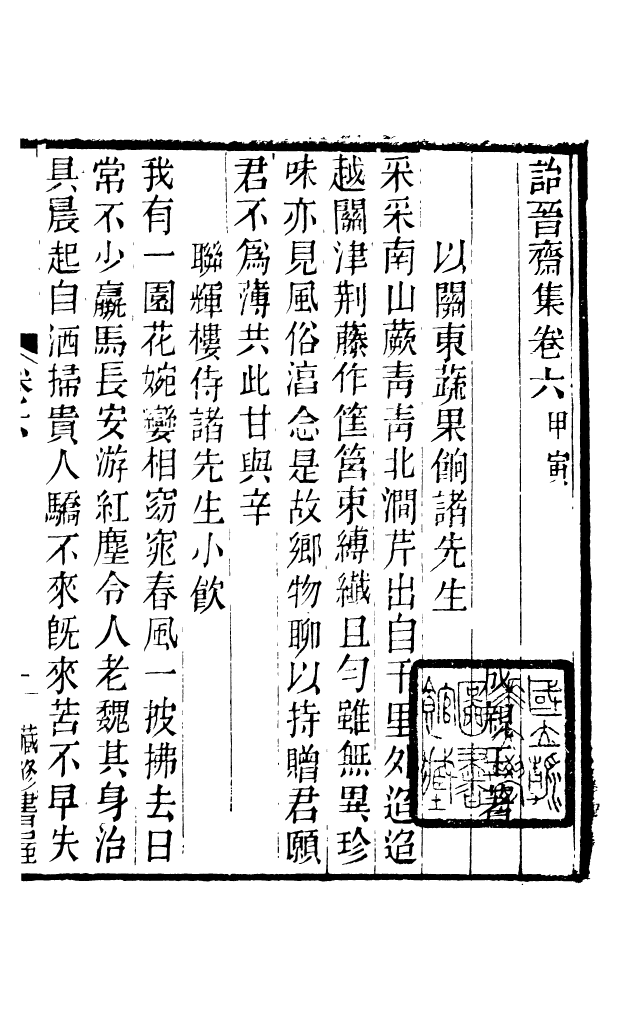 詒晉齋集卷六甲寅
成親王著
以關東蔬果餉諸先生
采采南山蕨青青北澗芹出自千里外迢迢
越關津荆藤作筐筥束縛纖且勻雖無異珍
味亦見風俗湻念是故鄉物聊以持贈君願
君不爲薄共此甘與辛
聯輝樓侍諸先生小飮
我有一園花婉孌相窈窕春風一披拂去日
常不少羸馬長安游紅塵令人老魏其身治
具晨起自洒掃貴人驕不來旣來苦不早失
卷六
一
藏修書屋